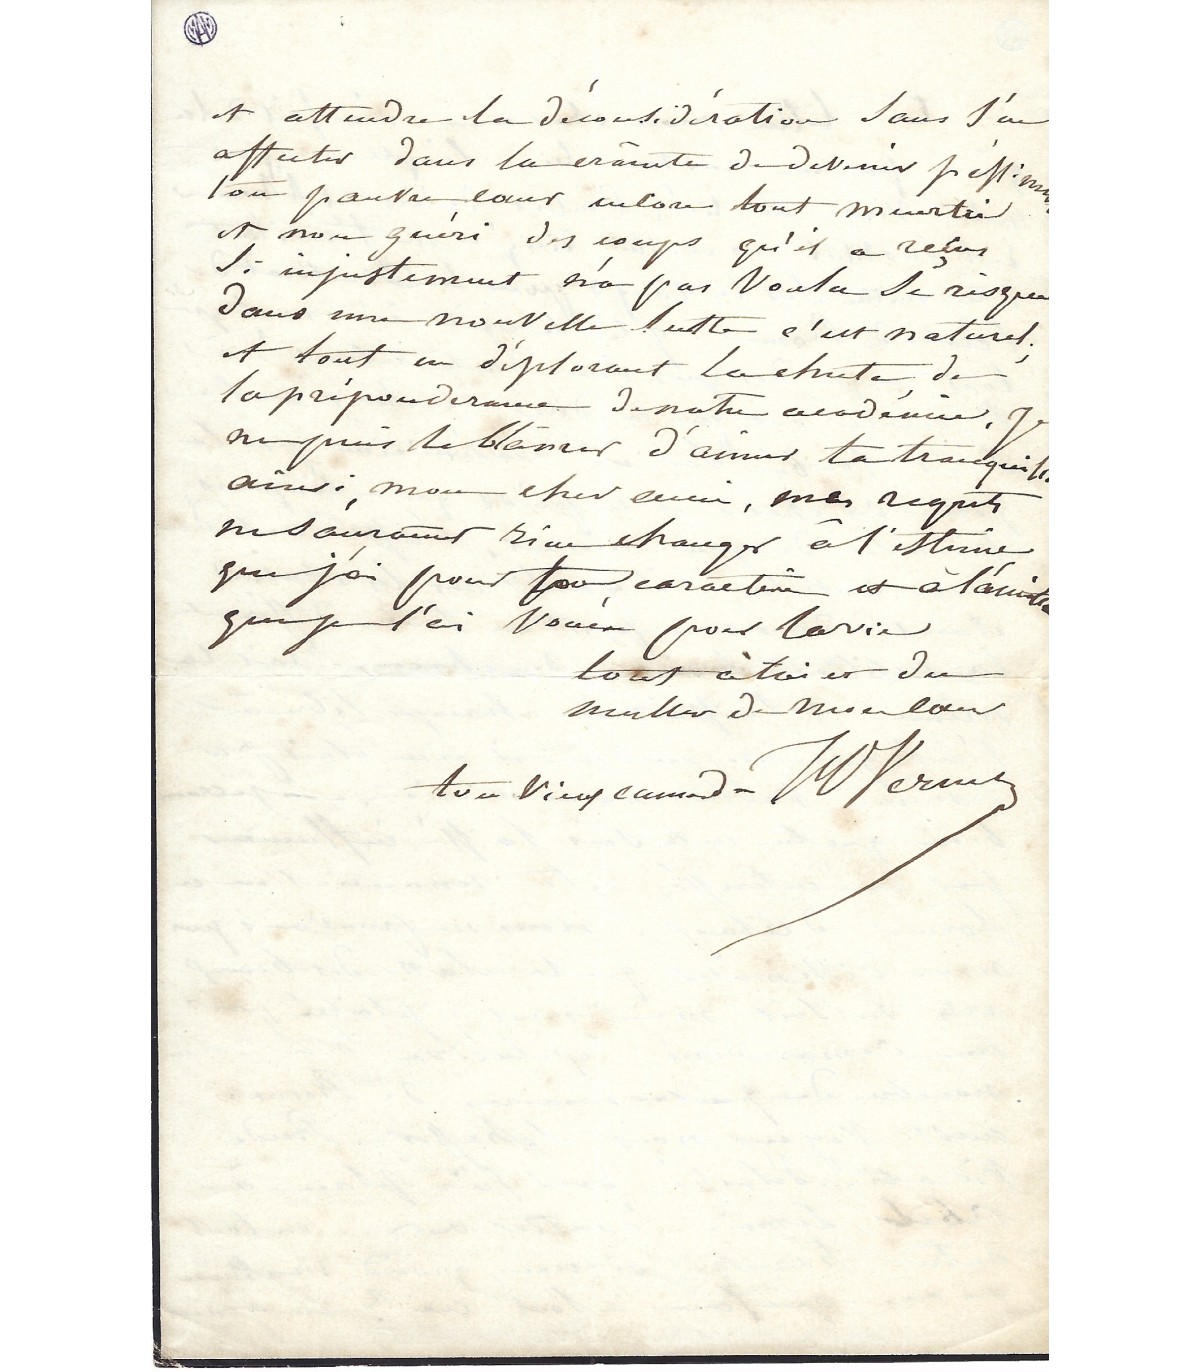 et attendre la déconsidération sans s'en
affecter dans la crainte de devenir
ton pauvre cœur encore tout meurtri
et non guéri des coups qu'il a reçus
si injustement n'a pas voulu se risquer
dans une nouvelle lutte c'est naturel,
et tout en déplorant la chute de
la préponderance de notre académie, je
ne puis te blâmer d'aimer ta
ainsi, mon cher ami, mes regrets
ne sauraient rien changer à l'estime
que j'ai pour ton caractère et à l'amitié
que je t'ai vouée pour la vie
tout à toi et du
meilleur de mon cœur
ton vieux camarade H Vernet